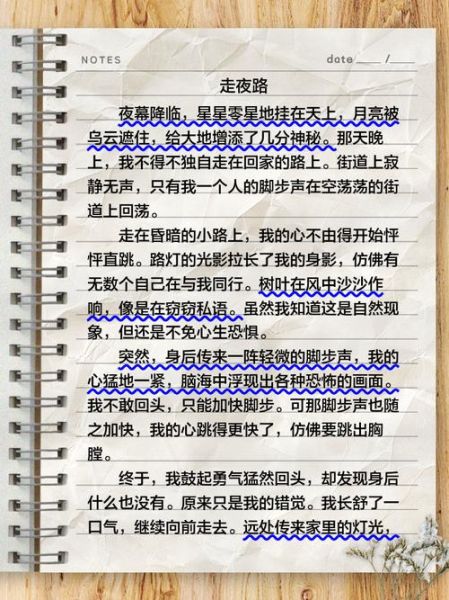 NOTES date ___ /___
走夜路
夜幕降临，星星零星地挂在天上，月亮被
乌云遮住，给大地增添了几分神秘。那天晚
上，我不得不独自走在回家的路上。街道上寂
静无声，只有我一个人的脚步声在空荡荡的街
道上回荡。
走在昏暗的小路上，我的心不由得开始怦
怦直跳。路灯的光影拉长了我的身影，仿佛有
无数个自己在与我同行。树叶在风中沙沙作
响，像是在窃窃私语。虽然我知道这是自然现
象，但还是不免心生恐惧。
突然，身后传来一阵轻微的脚步声，我的
心猛地一紧，脑海中浮现出各种恐怖的画面。
我不敢回头，只能加快脚步。可那脚步声也随
之加快，我的心跳得更快了，仿佛要跳出胸
膛。
终于，我鼓起勇气猛然回头，却发现身后
什么也没有。原来只是我的错觉。我长舒了一
口气，继续向前走去。远处传来家里的灯光，